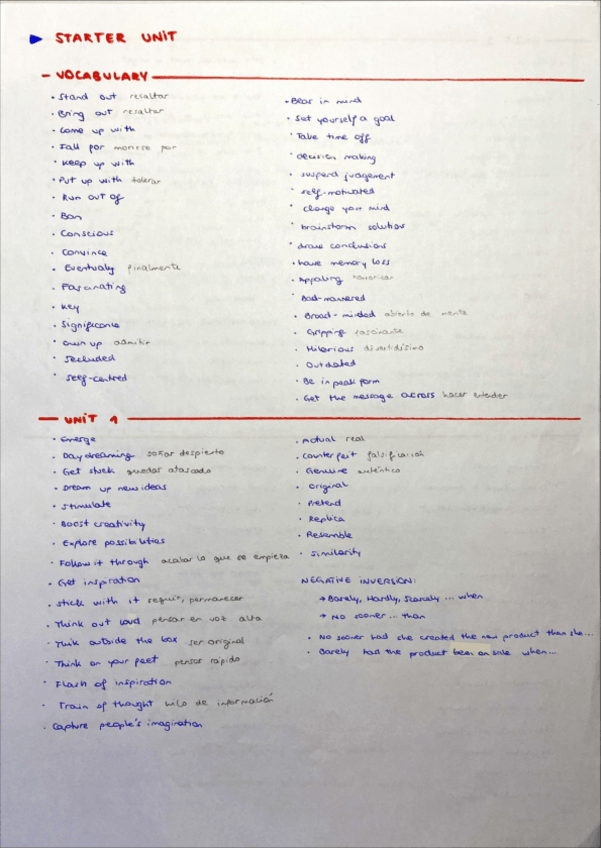 STARTER UNIT
- VOCABULARY
· Stand out resaltar
· Bring out resaltar
· Come up with
· Fall for morirse por
· Keep up with
· Put up with tolerar
· Run out of
· Ban
· Conscious
· Convince
· Eventualy finalmente
· Fascinating
· Key
· Significance
· own up admitir
· Secluded
· Self-centred
· Bear in mind
· Set yourself a goal
· Take time off
· decision making
· suspend judgement
· self-motivated
· change your mind
· brainstorm solution
· draw conclusions
· have memory loss
· Appaling
· Bad-mannered
· Broad-minded abierto de mente
· Gripping fascinante
· Hilarious divertidísimo
· Outdated
· Be in peak form
· Get the message across hacer entender
- UNIT 1
· Emerge
· Daydreaming soñar despierto
· Get stuck quedar atascado
· Dream up new ideas
· Stimulate
· Boost creativity
· Explore possibilities
· Follow it through acabar lo que se empieza
· Get inspiration
· Stick with it seguir, permanecer
· Think out loud pensar en voz alta
· Think outside the box ser original
· Think on your feet pensar rápido
· Flash of inspiration
· Train of thought hilo de información
· Capture people's imagination
· Actual real
· Counterfeit falsificación
· Genuine auténtico
· Original
· Pretend
· Replica
· Resemble
· Similarity
NEGATIVE INVERSION:
→ Barely, Hardly, Scarcely ... when
→ No sooner ... than
· No sooner had she created the new product than she...
· Barely had the product been on sale when...